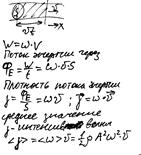 S
vt
x
W = ω·V
Поток энергии через
Φ_E = W/t = ω·v·S
Плотность потока энергии
j = Φ_E/S = ωv ; j⃗ = ω·v⃗
среднее значение
j - интенсивн. волны
<j> = <ω>v⃗ = ½ρA²ω²v⃗